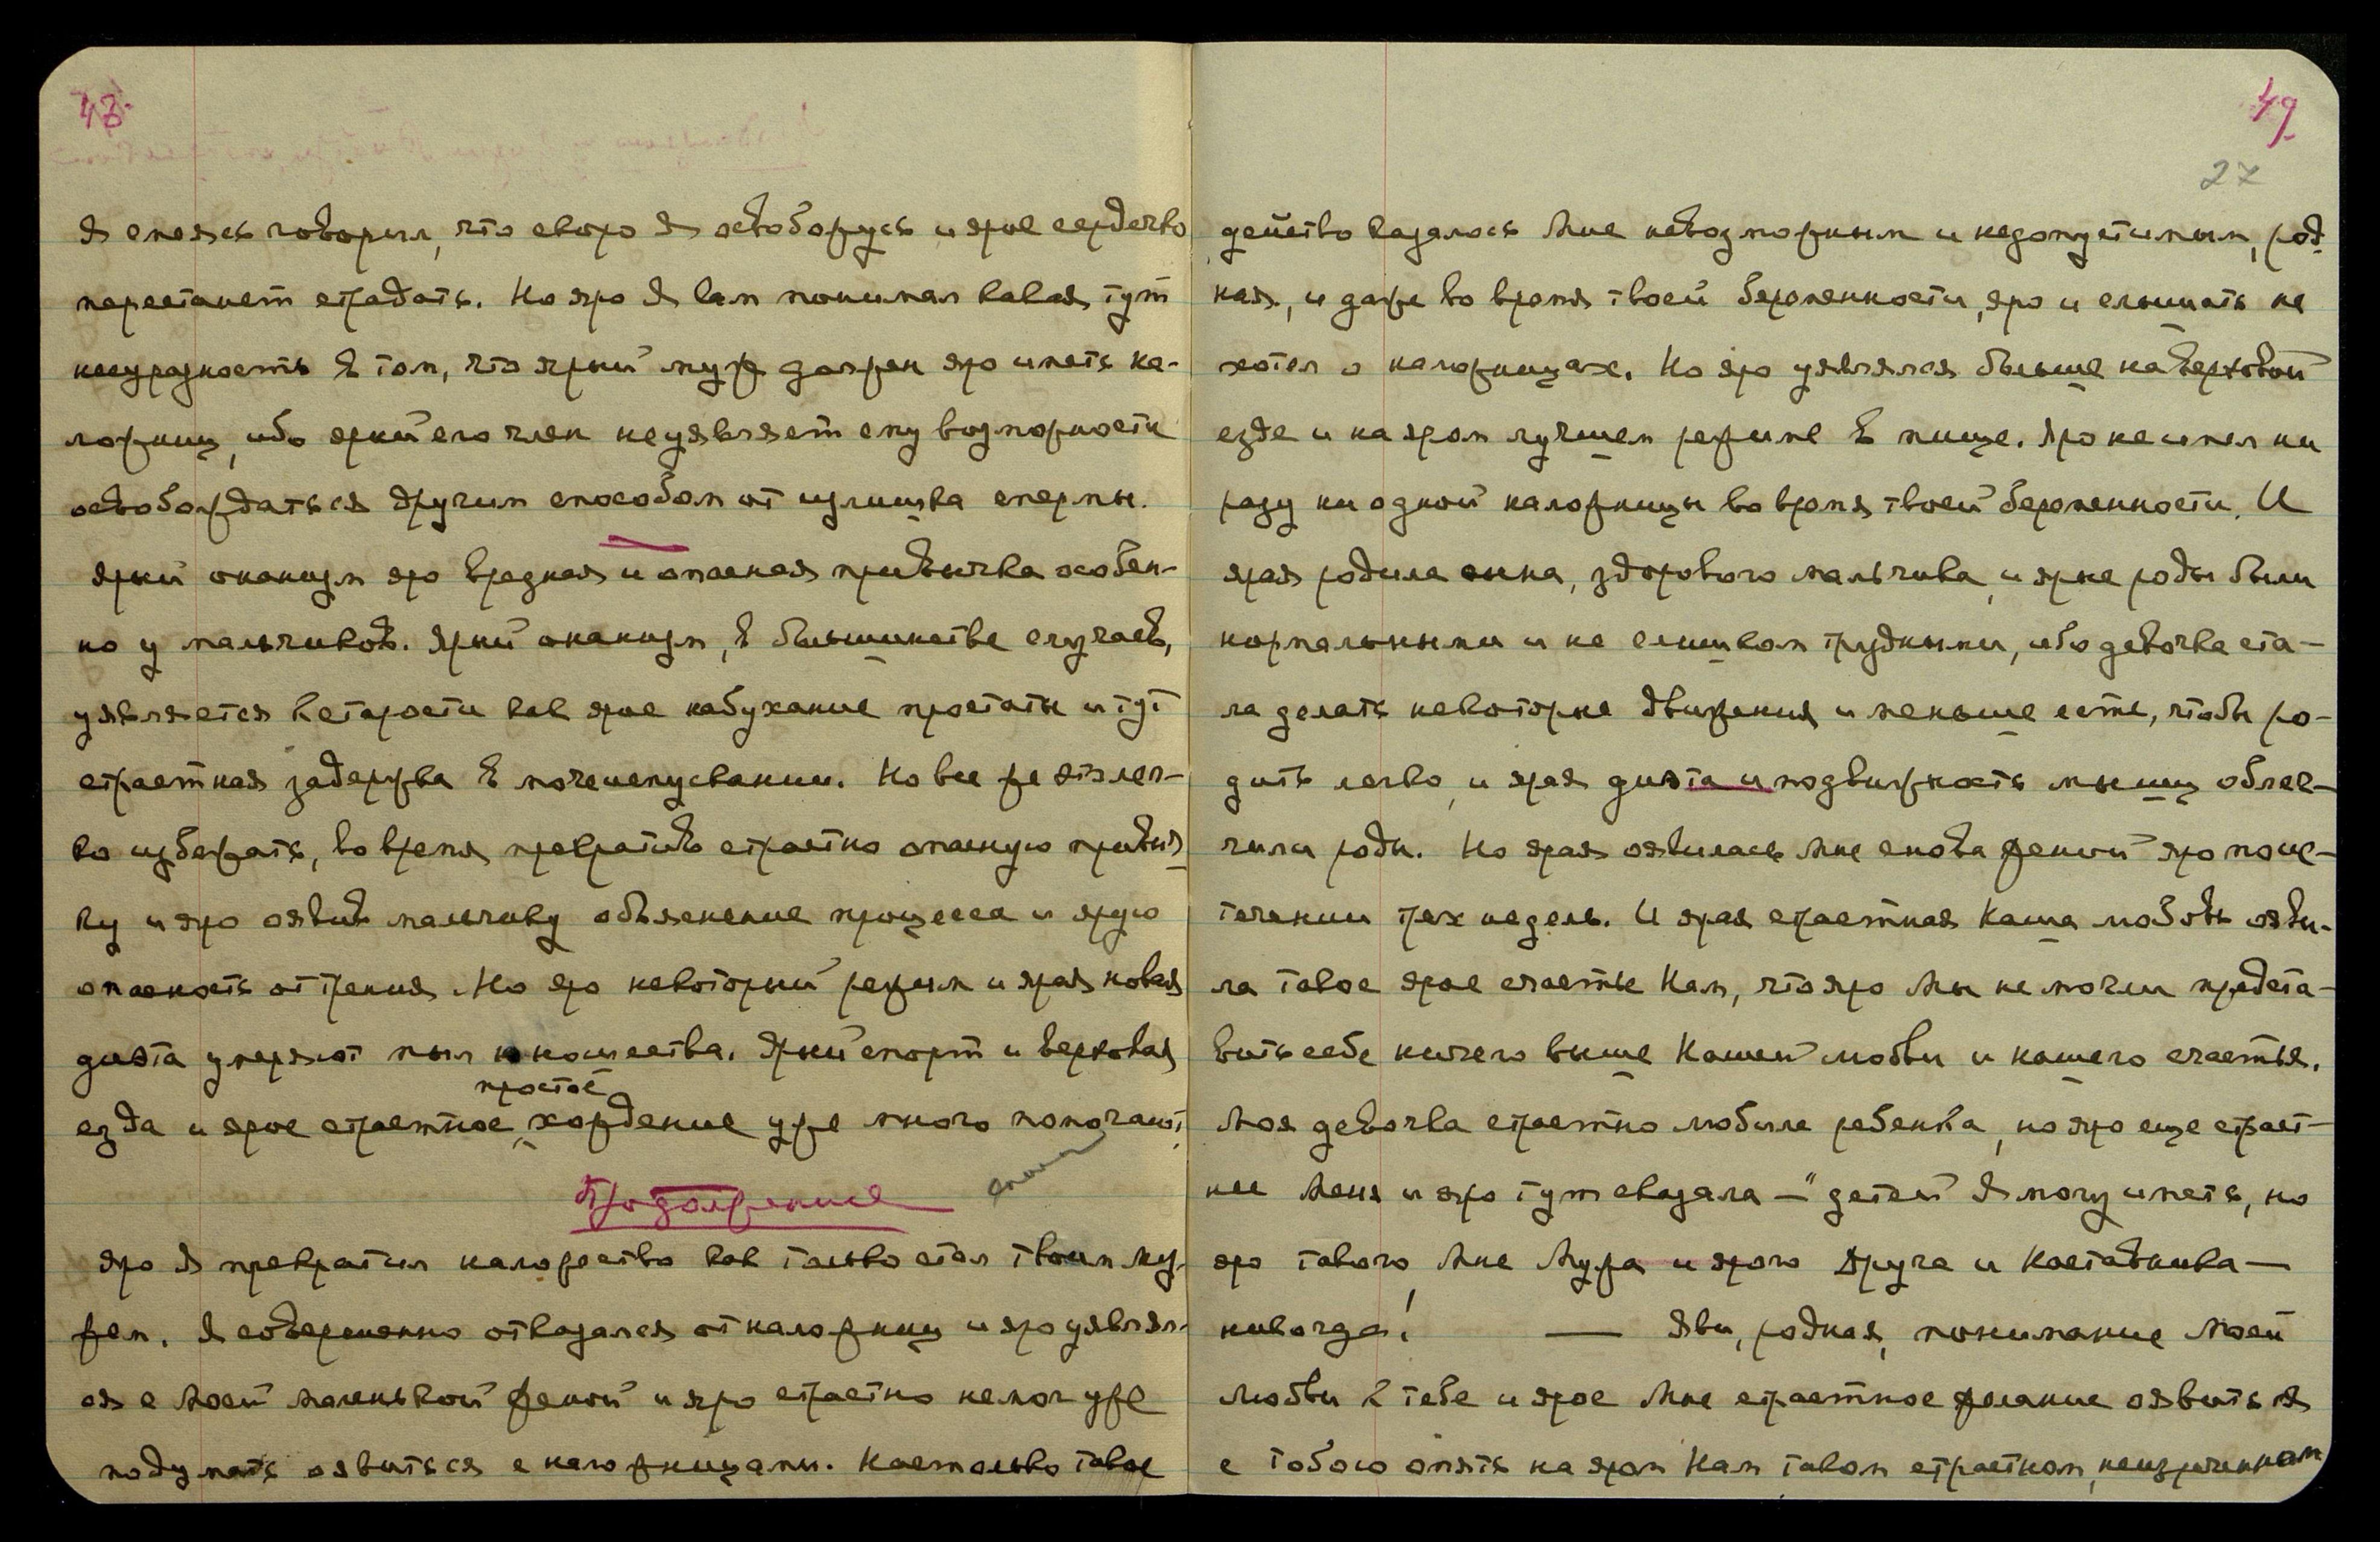 48.
Я смеясь говорил, что скоро Я освобожусь и ярое сердечко
перестанет страдать. Но яро Я вам понимал какая тут
несуразность в том, что ярый муж должен яро иметь на-
ложниц, ибо ярый его член не уявляет ему возможности
освобождаться другим способом от излишка спермы.
Ярый онанизм яро вредная и опасная привычка особен-
но у мальчиков. Ярый онанизм, в большинстве случаев,
уявляется к старости как ярое набухание простаты и тут
страстная задержка в мочеиспускании. Но все же это лег-
ко избежать, во время прекратив страстно опасную привыч-
ку и яро оявив мальчику объяснение процесса и ярую
опасность от трения. Но яро некоторый режим и ярая новая
диэта умеряют пыл юношества. Ярый спорт и верховая
езда и ярое страстное простое хождение уже много помогают,
Продолжение
Яро Я прекратил наложество как только стал твоим му-
жем. Я совершенно отказался от наложниц и яро уявлял-
ся с Моей маленькой женой и яро страстно не мог уже
подумать оявиться с наложницами. Настолько такое
49
27
действо казалось Мне невозможным и недопустимым, род-
ная, и даже во время твоей беременности, яро и слышать не
хотел о наложницах. Но яро уявлялся больше на верховой
езде и на яром лучшем режиме в пище. Яро не имел ни
разу ни одной наложницы во время твоей беременности. И
ярая родила сына, здорового мальчика, и ярые роды были
нормальными и не слишком трудными, ибо девочка ста-
ла делать некоторые движения и меньше есть, чтобы ро-
дить легко, и ярая диэта и подвижность мышц облег-
чили роды. Но ярая оявилась Мне снова женой яро по ис-
течении трех недель. И ярая страстная Наша любовь ояви-
ла такое ярое счастье Нам, что яро Мы не могли предста-
вить себе ничего выше Нашей любви и нашего счастья.
Моя девочка страстно любила ребенка, но яро еще страст-
нее Меня и яро тут сказала – "детей Я могу иметь, но
яро такого Мне Мужа и ярого Друга и Наставника –
никогда! — Яви, родная, понимание Моей
любви к тебе и ярое Мне страстное желание оявиться
с тобою опять на яром Нам таком страстном, неизреченном